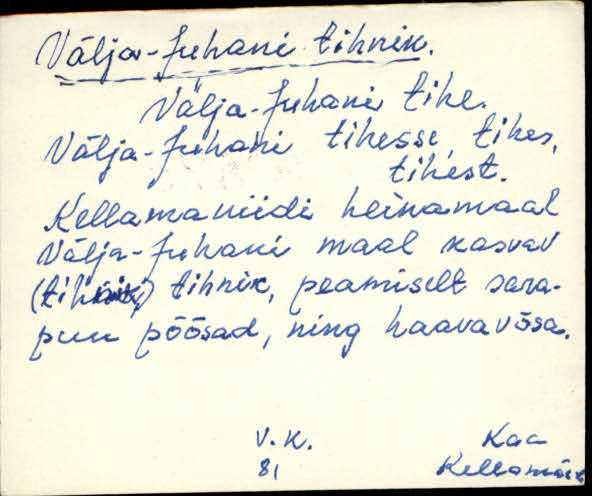 Välja-Juhani tihnik.
Välja-Juhani tihe.
Välja-Juhani tihesse, tihes,
tihest.
Kellamaniidi heinamaal
Välja-Juhani maal kasvav
tihnik, peamiselt sara-
puu põõsad, ning haavavõsa.
V.K. Kaa
81 Kellamäe